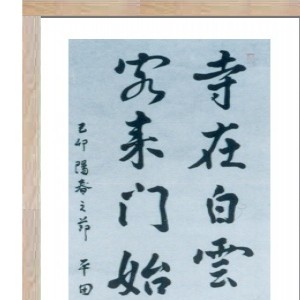 寺在白雲
客来门始
己卯陽春之節 平田